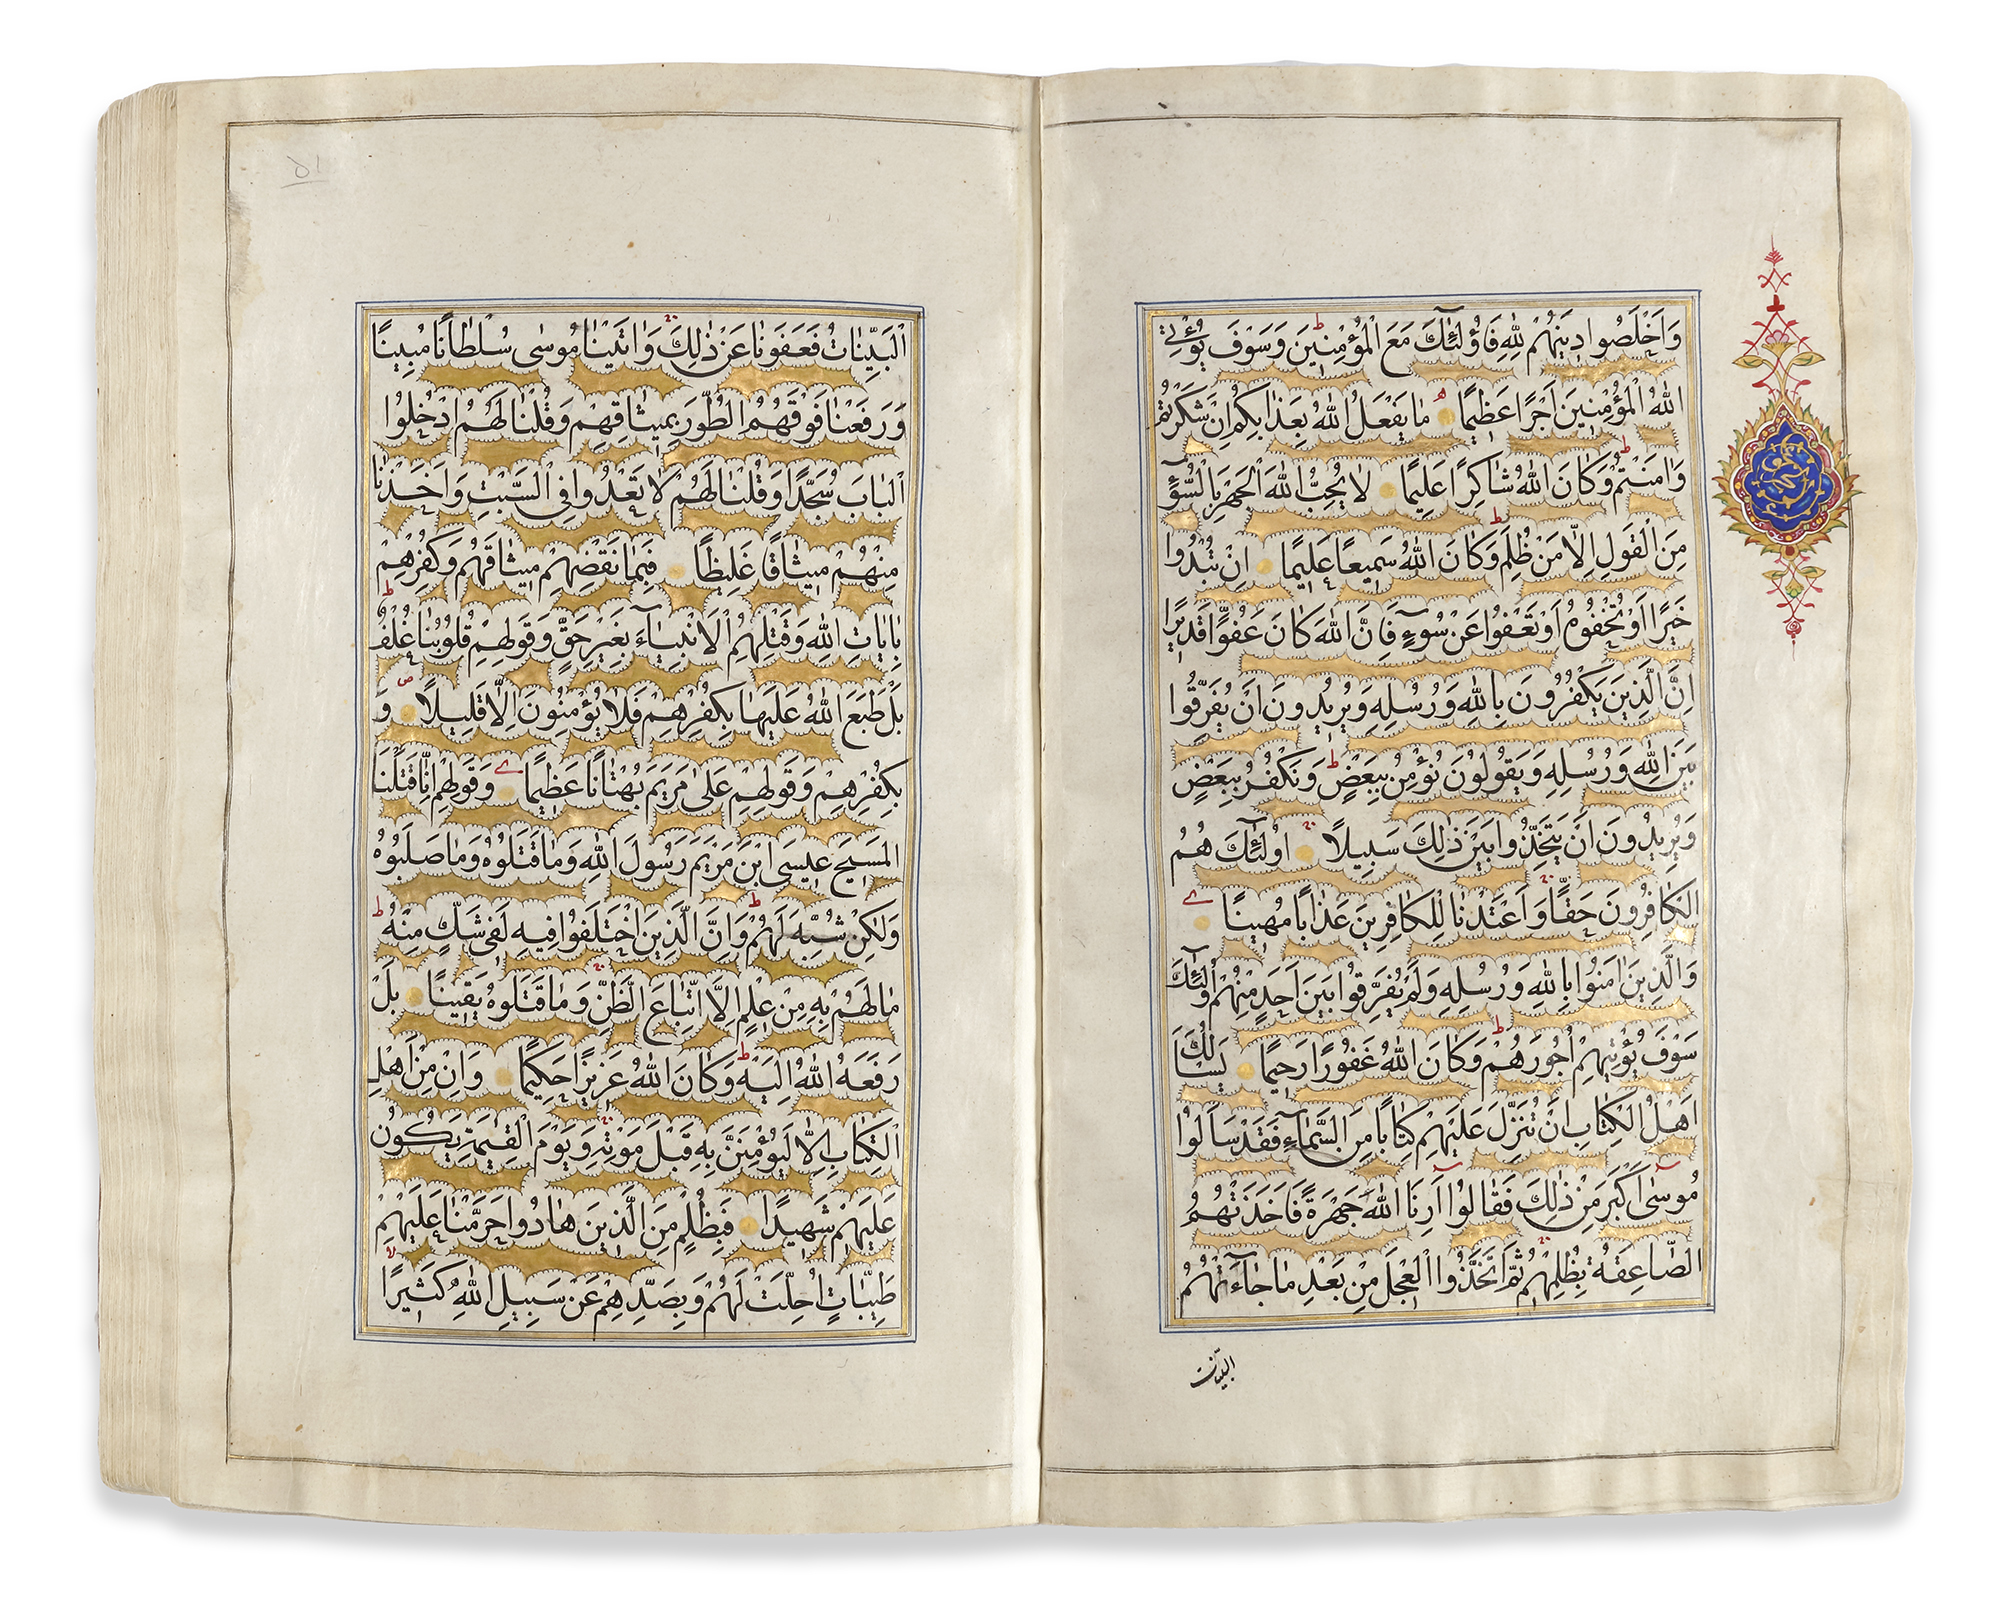 وَاَخْلَصُوا دِينَهُمْ لِلّٰهِ فَاُولٰٓئِكَ مَعَ الْمُؤْمِنِينَ وَسَوْفَ يُؤْتِي
اللّٰهُ الْمُؤْمِنِينَ اَجْرًا عَظِيمًا مَا يَفْعَلُ اللّٰهُ بِعَذَابِكُمْ اِنْ شَكَرْتُمْ
وَاٰمَنْتُمْ وَكَانَ اللّٰهُ شَاكِرًا عَلِيمًا لَا يُحِبُّ اللّٰهُ الْجَهْرَ بِالسُّوٓءِ
مِنَ الْقَوْلِ اِلَّا مَنْ ظُلِمَ وَكَانَ اللّٰهُ سَمِيعًا عَلِيمًا اِنْ تُبْدُوا
خَيْرًا اَوْ تُخْفُوهُ اَوْ تَعْفُوا عَنْ سُوٓءٍ فَاِنَّ اللّٰهَ كَانَ عَفُوًّا قَدِيرًا
اِنَّ الَّذِينَ يَكْفُرُونَ بِاللّٰهِ وَرُسُلِهِ وَيُرِيدُونَ اَنْ يُفَرِّقُوا
بَيْنَ اللّٰهِ وَرُسُلِهِ وَيَقُولُونَ نُؤْمِنُ بِبَعْضٍ وَنَكْفُرُ بِبَعْضٍ
وَيُرِيدُونَ اَنْ يَتَّخِذُوا بَيْنَ ذٰلِكَ سَبِيلًا اُولٰٓئِكَ هُمُ
الْكَافِرُونَ حَقًّا وَاَعْتَدْنَا لِلْكَافِرِينَ عَذَابًا مُهِينًا
وَالَّذِينَ اٰمَنُوا بِاللّٰهِ وَرُسُلِهِ وَلَمْ يُفَرِّقُوا بَيْنَ اَحَدٍ مِنْهُمْ اُولٰٓئِكَ
سَوْفَ يُؤْتِيهِمْ اُجُورَهُمْ وَكَانَ اللّٰهُ غَفُورًا رَحِيمًا يَسْاَلُكَ
اَهْلُ الْكِتَابِ اَنْ تُنَزِّلَ عَلَيْهِمْ كِتَابًا مِنَ السَّمَآءِ فَقَدْ سَاَلُوا
مُوسٰٓى اَكْبَرَ مِنْ ذٰلِكَ فَقَالُوٓا اَرِنَا اللّٰهَ جَهْرَةً فَاَخَذَتْهُمُ
الصَّاعِقَةُ بِظُلْمِهِمْ ثُمَّ اتَّخَذُوا الْعِجْلَ مِنْ بَعْدِ مَا جَآءَتْهُمُ
البينات
٥١
الْبَيِّنَاتُ فَعَفَوْنَا عَنْ ذٰلِكَ وَاٰتَيْنَا مُوسٰى سُلْطَانًا مُبِينًا
وَرَفَعْنَا فَوْقَهُمُ الطُّورَ بِمِيثَاقِهِمْ وَقُلْنَا لَهُمُ ادْخُلُوا
الْبَابَ سُجَّدًا وَقُلْنَا لَهُمْ لَا تَعْدُوا فِي السَّبْتِ وَاَخَذْنَا
مِنْهُمْ مِيثَاقًا غَلِيظًا فَبِمَا نَقْضِهِمْ مِيثَاقَهُمْ وَكُفْرِهِمْ
بِاٰيَاتِ اللّٰهِ وَقَتْلِهِمُ الْاَنْبِيَآءَ بِغَيْرِ حَقٍّ وَقَوْلِهِمْ قُلُوبُنَا غُلْفٌ
بَلْ طَبَعَ اللّٰهُ عَلَيْهَا بِكُفْرِهِمْ فَلَا يُؤْمِنُونَ اِلَّا قَلِيلًا وَ
بِكُفْرِهِمْ وَقَوْلِهِمْ عَلٰى مَرْيَمَ بُهْتَانًا عَظِيمًا وَقَوْلِهِمْ اِنَّا قَتَلْنَا
الْمَسِيحَ عِيسَى ابْنَ مَرْيَمَ رَسُولَ اللّٰهِ وَمَا قَتَلُوهُ وَمَا صَلَبُوهُ
وَلٰكِنْ شُبِّهَ لَهُمْ وَاِنَّ الَّذِينَ اخْتَلَفُوا فِيهِ لَفِي شَكٍّ مِنْهُ
مَا لَهُمْ بِهِ مِنْ عِلْمٍ اِلَّا اتِّبَاعَ الظَّنِّ وَمَا قَتَلُوهُ يَقِينًا بَلْ
رَفَعَهُ اللّٰهُ اِلَيْهِ وَكَانَ اللّٰهُ عَزِيزًا حَكِيمًا وَاِنْ مِنْ اَهْلِ
الْكِتَابِ اِلَّا لَيُؤْمِنَنَّ بِهِ قَبْلَ مَوْتِهِ وَيَوْمَ الْقِيٰمَةِ يَكُونُ
عَلَيْهِمْ شَهِيدًا فَبِظُلْمٍ مِنَ الَّذِينَ هَادُوا حَرَّمْنَا عَلَيْهِمْ
طَيِّبَاتٍ اُحِلَّتْ لَهُمْ وَبِصَدِّهِمْ عَنْ سَبِيلِ اللّٰهِ كَثِيرًا